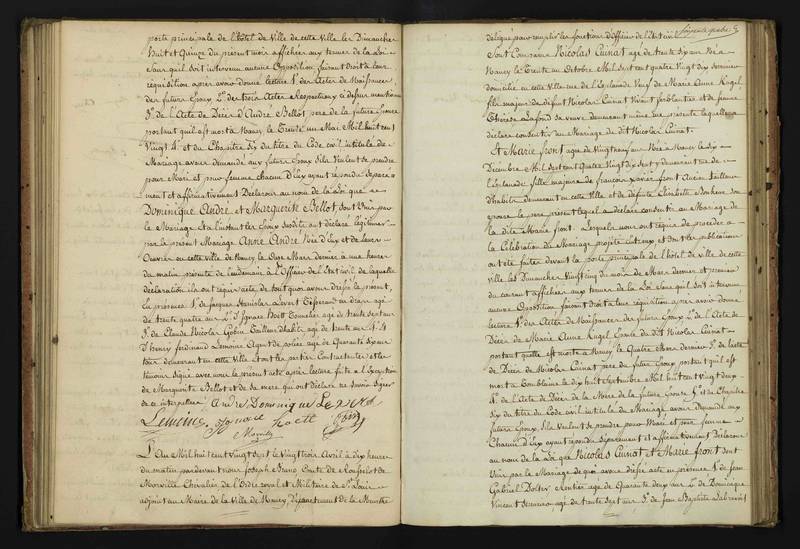 porte principale de l'hôtel de Ville de cette Ville les Dimanches
huit et Quinze du présent mois affichées aux termes de la Loi
sans qu'il soit intervenu aucune Opposition faisant droit à leur
réquisition après avoir donné lecture 1º des Actes de Naissance
des futurs Epoux 2º des trois Actes Respectueux ci dessus mentionnés
3º de l'Acte de Décès d'André Bellot père de la future Epouse
portant qu'il est mort à Nancy le Trente un Mai Mil huit cent
Vingt 4 et du Chapitre Six du titre du Code civil intitulé du
Mariage avons demandé aux futurs Epoux s'ils Veulent se prendre
pour Mari et pour femme chacun d'Eux ayant répondu séparé
ment et affirmativement Déclarons au nom de la Loi que
Dominique André et Marguerite Bellot sont Unis par
le Mariage et à l'instant les Epoux susdits ont déclaré légitimer
par le présent Mariage Anne André Née d'Eux et de leurs
Œuvres en cette ville de Nancy le Onze Mars dernier à une heure
du matin présentée le lendemain à l'Officier de l'Etat civil de laquelle
déclaration ils ont requis acte, de tout quoi avons dressé le présent,
En présence 1º de Jacques Stanislas Levert Tisserand en draps agé
de trente quatre ans 2º d'Ignace Hoett Tonnelier agé de trente sept ans
3º de Claude Nicolas Gobin Tailleur d'habits agé de trente un ans 4º
d'henry ferdinand Lemoine Agent de police agé de Quarante six ans
tous demeurant en cette Ville et ont les parties Contractantes et les
témoins signé avec nous le présent acte après lecture faite à l'Exception
de Marguerite Bellot et de sa mère qui ont déclaré ne savoir signer
de ce interpellées André Dominique Levert
Lemoine Ignace hoett Gobin
Morville
L'An Mil huit cent vingt sept le Vingt trois Avril à dix heures
du matin pardevant nous Joseph Comte de Rouxelot de
Morville Chevalier de l'Ordre royal et Militaire de St Louis
adjoint au Maire de la Ville de Nancy, Département de la Meurthe
Soixante quatre
délégué pour remplir les fonctions d'Officier de l'Etat civil
Sont Comparus Nicolas Cuinat agé de trente six ans Né à
Nancy le Trente un Octobre Mil sept cent quatre Vingt dix
domicilié en cette Ville rue de l'Esplanade Veuf de Marie Anne Angel
fils majeur de défunt Nicolas Cuinat Vivant ferblantier et de femme
Thérèse Lafond sa veuve demeurant même rue présente laquelle a
déclaré consentir au Mariage du dit Nicolas Cuinat.
Et Marie front agée de Vingt neuf ans Née à Nancy le Six
Décembre Mil sept cent Quatre Vingt dix sept y demeurant rue de
l'Esplanade fille majeure de françois Xavier front Ancien Tailleur
d'habits demeurant en cette Ville et de défunte Elisabeth Bonheur son
épouse le père présent lequel a déclaré consentir au Mariage de
la dite Marie front. Lesquels nous ont requis de procéder à
la Célébration du Mariage projeté entr'eux et dont les publications
ont été faites devant la porte principale de l'hôtel de ville de cette
ville les Dimanches Vingt cinq du mois de Mars dernier et premier
du courant affichées aux termes de la Loi sans qu'il soit intervenu
aucune Opposition faisant droit à leur réquisition après avoir donné
lecture 1º des Actes de Naissance des futurs Epoux 2º de l'Acte de
Décès de Marie Anne Angel Epouse du dit Nicolas Cuinat
portant qu'elle est morte à Nancy le Quatre Mars dernier 3º de l'acte
de Décès de Nicolas Cuinat père du futur Epoux portant qu'il est
mort à le dix huit Septembre Mil huit cent vingt deux
4º de l'Acte de Décès de la Mère de la future Epouse 5º et du Chapitre
Six du titre du Code civil intitulé du Mariage, avons demandé aux
futurs Epoux, s'ils Veulent se prendre pour Mari et pour femme
Chacun d'Eux ayant répondu Séparément et affirmativement Déclarons
au nom de la Loi que Nicolas Cuinat et Marie front sont
Unis par le Mariage de quoi avons dressé acte en présence 1º de Jean
Gabriel Dolter Rentier agé de Quarante deux ans 2º de Dominique
Vincent agé de trente sept ans 3º de Jean Baptiste